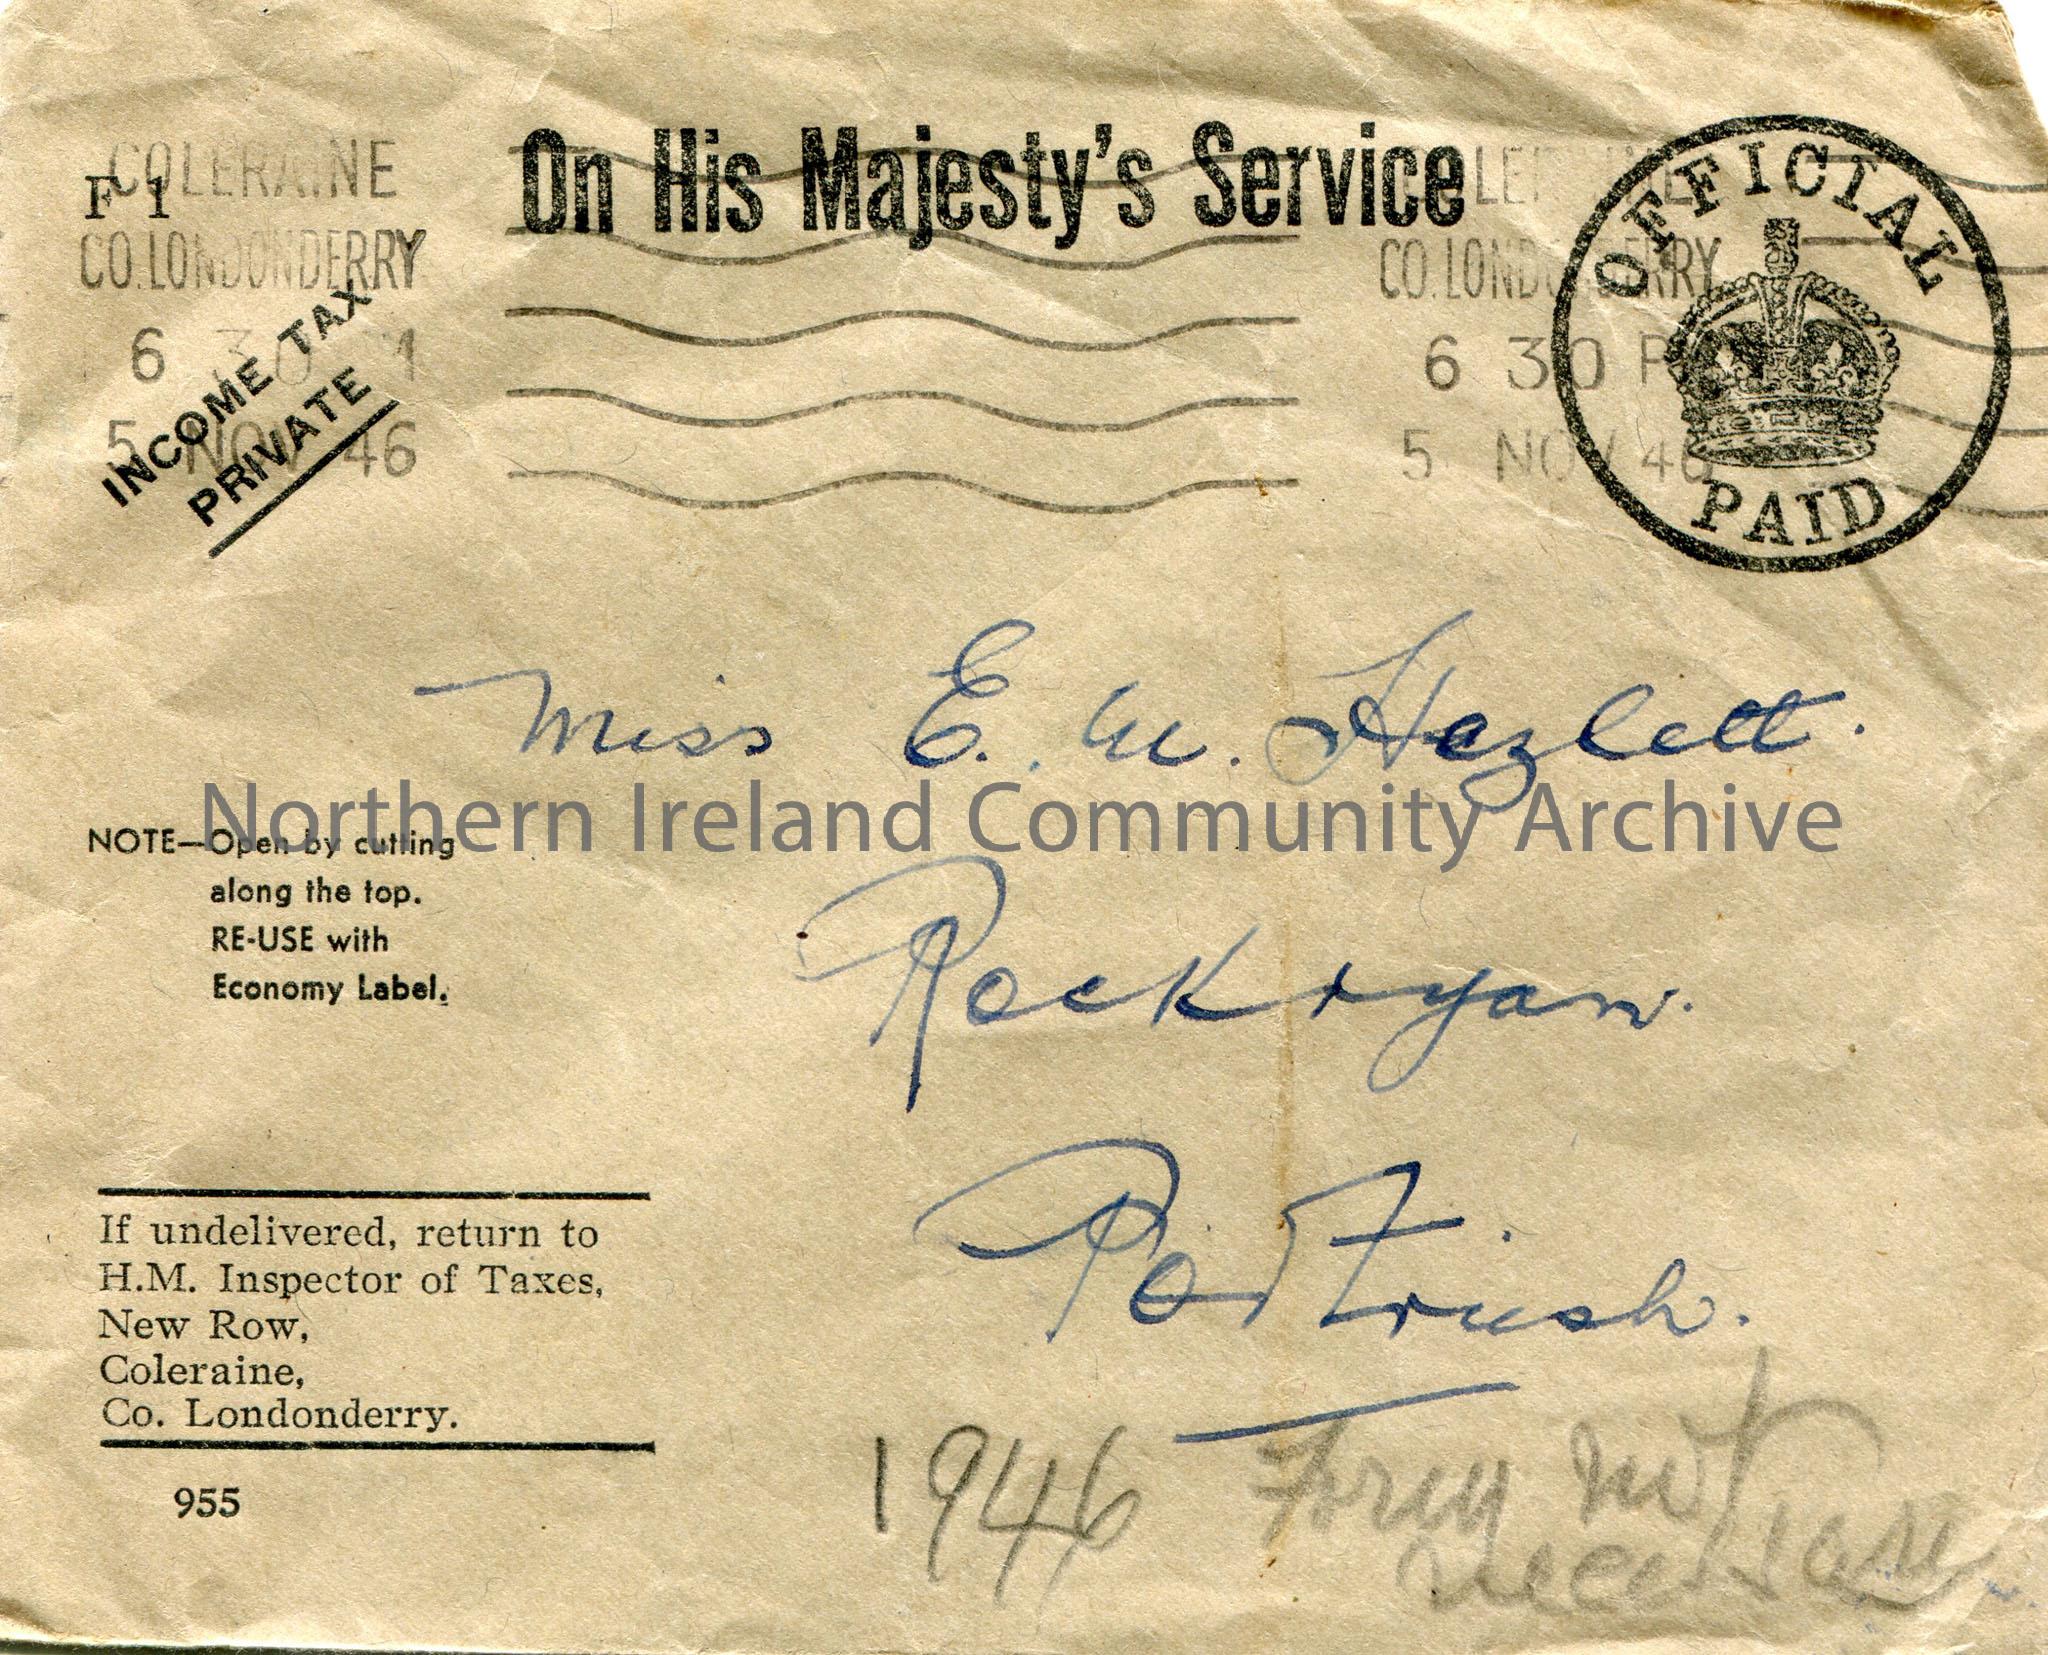 COLERAINE
CO. LONDONDERRY
6 30 PM
5 NOV 46
F 1
On His Majesty's Service
COLERAINE
CO. LONDONDERRY
6 30 P
5 NOV 46
OFFICIAL
PAID
INCOME TAX
PRIVATE
Miss E. M. Hezlett.
Northern Ireland Community Archive
NOTE—Open by cutting
along the top.
RE-USE with
Economy Label.
Rockryan.
Portrush.
If undelivered, return to
H.M. Inspector of Taxes,
New Row,
Coleraine,
Co. Londonderry.
955
1946 Form not
necessary